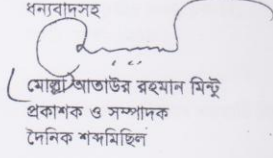 ধন্যবাদসহ
মোল্লা আতাউর রহমান মিন্টু
প্রকাশক ও সম্পাদক
দৈনিক শব্দমিছিল